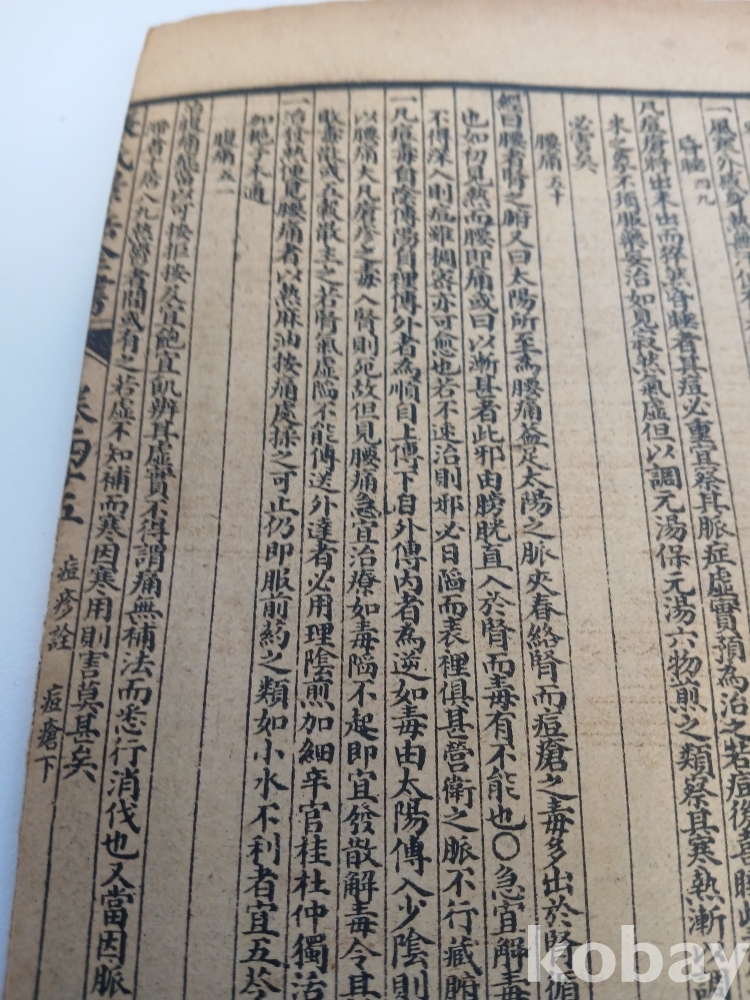 一風寒外感身熱無
昏睡四九
凡痘瘡將出未出而猝然昏睡者其痘必重宜察其脈症虛實預為治之若痘後喜睡
未之象不須服藥妄治如見寂然氣虛但以調元湯保元湯六物煎之類察其寒熱漸以調
必害矣
腰痛五十
經曰腰者腎之腑又曰太陽所至為腰痛蓋足太陽之脈夾脊絡腎而痘瘡之毒多出於腎循
也如初見熱而腰即痛或曰以漸甚者此邪由膀胱直入於腎而毒有不能也〇急宜解毒
不得深入則痘雖稠密亦可愈也若不速治則邪必日陷而表裡俱甚營衛之脈不行藏腑
一凡痘毒自陰傳陽自裡傳外者為順自上傳下自外傳內者為逆如毒由太陽傳入少陰則
以腰痛大凡瘡疹之毒入腎則死故但見腰痛急宜治療如毒陷不起即宜發散解毒令其
敗毒散或五積散主之若腎氣虛陷不能傳送外達者必用理陰煎加細辛官桂杜仲獨活
一治發熱便見腰痛者以熱麻油按痛處揉之可止仍即服前藥之類如小水不利者宜五苓
加梔子木通
腹痛五一
治腹痛總當以可按拒按及宜飽宜飢辨其虛實不得謂痛無補法而悉行消伐也又當因脈
滯者十居八九熱鬱者間或有之若虛不知補而寒因寒用則害莫甚矣
景岳全書
卷四五
痘疹詮
痘瘡下
kobay